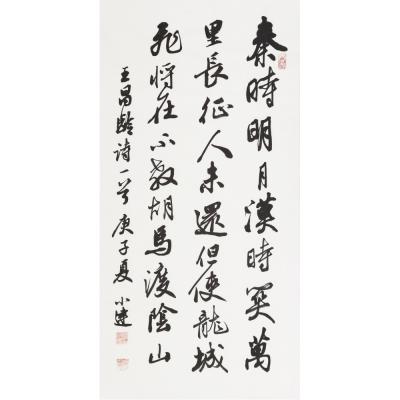 秦時明月漢時關萬
里長征人未還但使龍城
飛將在不教胡馬渡陰山
王昌齡詩一首 庚子夏 小建